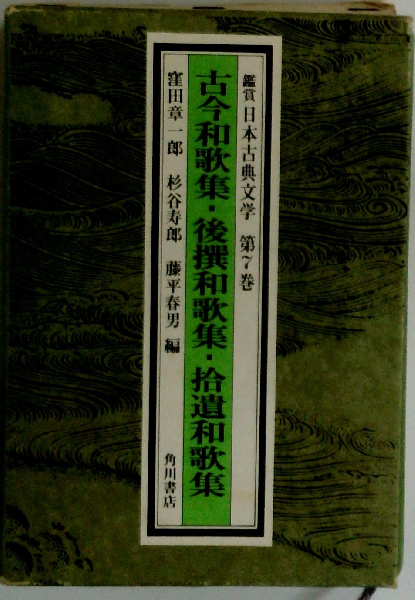 鑑賞 日本古典文学 第7巻
古今和歌集・後撰和歌集・拾遺和歌集
窪田章一郎 杉谷寿郎 藤平春男 編
角川書店